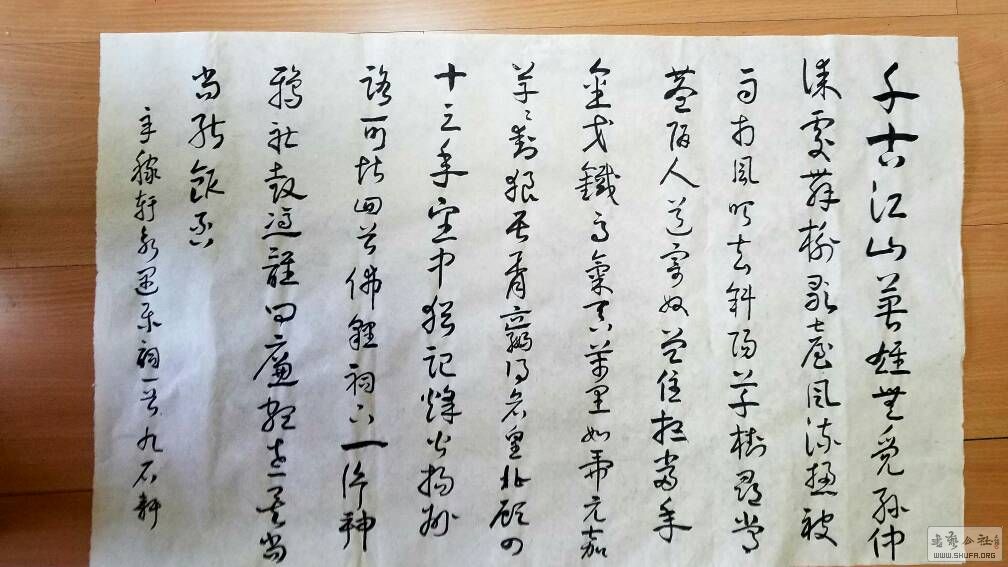 千古江山英雄無覓孫仲
謀處舞榭歌臺風流總被
雨打風吹去斜陽草樹尋常
巷陌人道寄奴曾住想當年
金戈鐵馬氣吞萬里如虎元嘉
草〻封狼居胥贏得倉皇北顧四
十三年望中猶記烽火揚州
路可堪回首佛貍祠下一片神
鴉社鼓憑誰問廉頗老矣尚
尚能飯否
辛稼軒永遇樂詞一首 九石軒
WWW.SHUFA.ORG